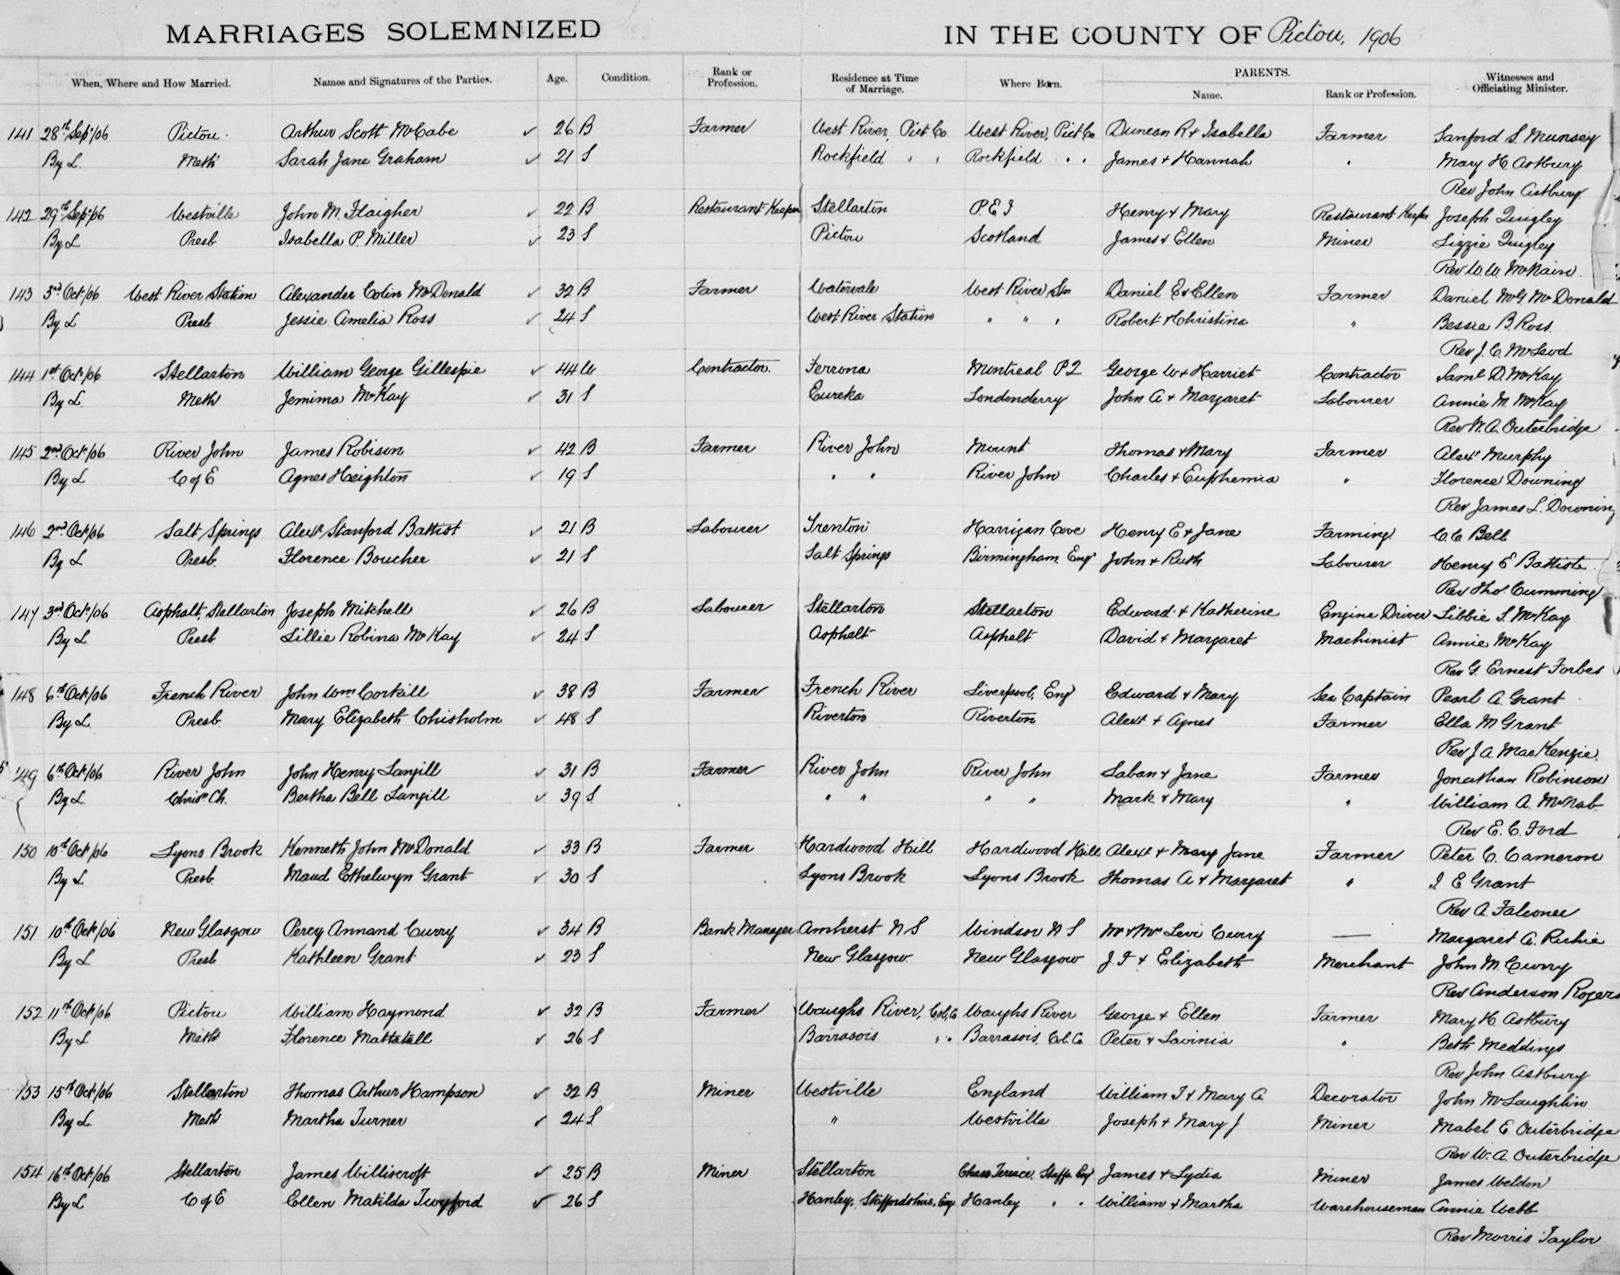 MARRIAGES SOLEMNIZED IN THE COUNTY OF Pictou, 1906
When, Where and How Married. Names and Signatures of the Parties. Age. Condition. Rank or Profession. Residence at Time of Marriage. Where Born. PARENTS. Name. Rank or Profession. Witnesses and Officiating Minister.
141 28th Sep/06 Pictou Arthur Scott McCabe ✓ 26 B Farmer West River, Pict Co West River, Pict Co Duncan R & Isabella Farmer Sanford S. Munsey
By L. Meth Sarah Jane Graham ✓ 21 S Rockfield " " Rockfield " " James & Hannah " Mary H. Astbury
Rev John Astbury
142 29th Sep/06 Westville John M. Flaigher ✓ 22 B Restaurant Keeper Stellarton P.E.I Henry & Mary Restaurant Keeper Joseph Quigley
By L Presb Isabella P. Miller ✓ 23 S Pictou Scotland James & Ellen Miner Lizzie Quigley
Rev W. W. McNairn
143 3rd Oct/06 West River Station Alexander Colin McDonald ✓ 32 B Farmer Watervale West River Stn Daniel E & Ellen Farmer Daniel McG McDonald
By L Presb Jessie Amelia Ross ✓ 24 S West River Station " " " Robert & Christina " Bessie B. Ross
Rev J. C. McLeod
144 1st Oct/06 Stellarton William George Gillespie ✓ 44 W Contractor. Ferrona Montreal P2 George W & Harriet Contractor Saml D. McKay
By L. Meth Jemima McKay ✓ 31 S Eureka Londonderry John A & Margaret Labourer Annie M. McKay
Rev W. A. Outerbridge
145 2nd Oct/06 River John James Robison ✓ 42 B Farmer River John Mount Thomas & Mary Farmer Alexr Murphy
By L C of E Agnes Heighton ✓ 19 S " " River John Charles & Euphemia " Florence Downing
Rev James L. Downing
146 2nd Oct/06 Salt Springs Alexr Stanford Battist ✓ 21 B Labourer Trenton Harrigan Cove Henry E & Jane Farming C. C. Bell
By L Presb. Florence Boucher ✓ 21 S Salt Springs Birmingham, Eng John & Ruth Labourer Henry E Battiste
Rev Thos Cumming
147 3rd Oct/06 Asphalt, Stellarton Joseph Mitchell ✓ 26 B Labourer Stellarton Stellarton Edward & Katherine Engine Driver Libbie S. McKay
By L. Presb Lillie Robina McKay ✓ 24 S Asphalt Asphalt David & Margaret Machinist Annie McKay
Rev G. Ernest Forbes
148 6th Oct/06 French River John Wm Corkill ✓ 38 B Farmer French River Liverpool, Eng Edward & Mary Sea Captain Pearl A. Grant
By L. Presb. Mary Elizabeth Chisholm ✓ 48 S Riverton Riverton Alexr & Agnes Farmer Ella M Grant
Rev J. A. MacKenzie
149 6th Oct/06 River John John Henry Langill ✓ 31 B Farmer River John River John Laban & Jane Farmer Jonathan Robinson
By L Chrisn Ch. Bertha Bell Langill ✓ 39 S " " " " Mark & Mary " William A. McNab
Rev E. C. Ford
150 10th Oct/06 Lyons Brook Kenneth John McDonald ✓ 33 B Farmer Hardwood Hill Hardwood Hill Alexr & Mary Jane Farmer Peter C. Cameron
By L Presb Maud Ethelwyn Grant ✓ 30 S Lyons Brook Lyons Brook Thomas A & Margaret " I E Grant
Rev A. Falconer
151 10th Oct/06 New Glasgow Percy Annand Curry ✓ 34 B Bank Manager Amherst N S Windsor N S Mr & Mrs Levi Curry — Margaret A. Richie
By L Presb Kathleen Grant ✓ 23 S New Glasgow New Glasgow J F & Elizabeth Merchant John M. Curry
Rev Anderson Rogers
152 11th Oct/06 Pictou William Haymond ✓ 32 B Farmer Waughs River, Col. Co Waughs River George & Ellen Farmer Mary H Astbury
By L Meth Florence Mattatall ✓ 26 S Barrasois " " Barrasois, Col. Co Peter & Lavinia " Beth Meddings
Rev John Astbury
153 15th Oct/06 Stellarton Thomas Arthur Hampson ✓ 32 B Miner Westville England William T & Mary A Decorator John McLaughlin
By L Meth Martha Turner ✓ 24 S " Westville Joseph & Mary J Miner Mabel E Outerbridge
Rev W. A. Outerbridge
154 16th Oct/06 Stellarton James Williscroft ✓ 25 B Miner Stellarton Chase Terrace, Staffs. Eng James & Lydia Miner James Weldon
By L C of E Ellen Matilda Twyford ✓ 26 S Hanley, Staffordshire, Eng Hanley " " William & Martha Warehouseman Annie Webb
Rev Morris Taylor